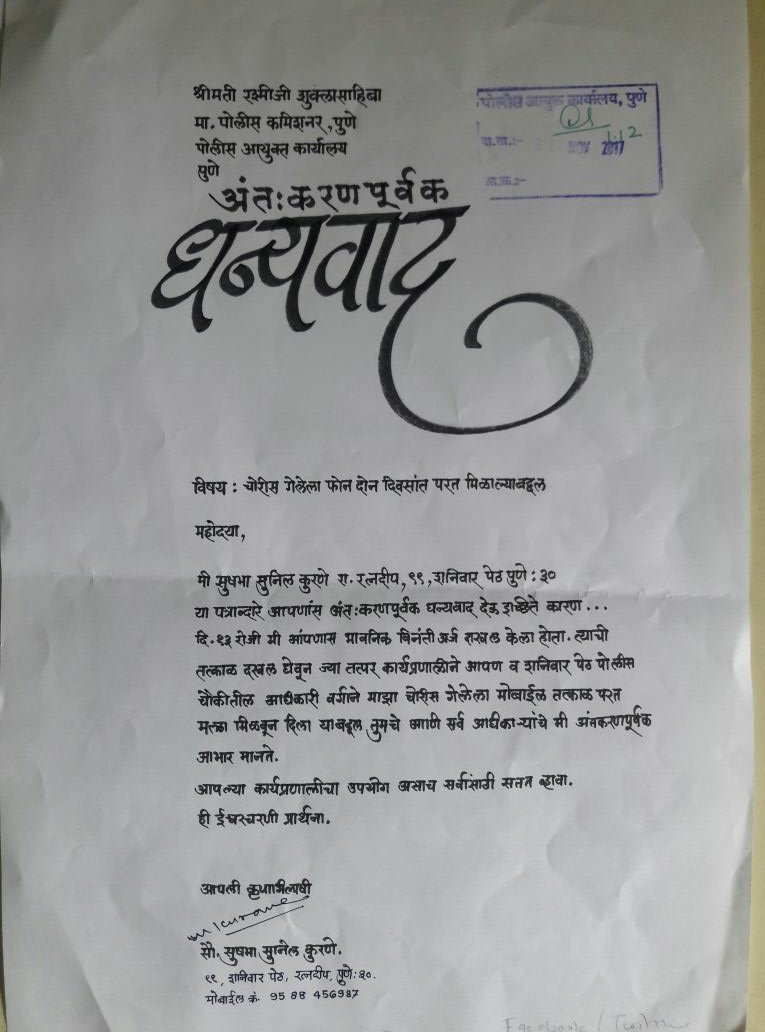 श्रीमती रश्मीजी शुक्लासाहिबा
मा. पोलीस कमिशनर, पुणे
पोलीस आयुक्त कार्यालय
पुणे
पोलीस आयुक्त कार्यालय, पुणे
NOV 2017
अंतःकरणपूर्वक
धन्यवाद
विषय : चोरीस गेलेला फोन दोन दिवसांत परत मिळाल्याबद्दल
महोदया,
मी सुषमा सुनिल कुरणे रा. रत्नदीप, ९९, शनिवार पेठ पुणे : ३०
या पत्रान्दारे आपणांस अंतःकरणपूर्वक धन्यवाद देऊ इच्छिते कारण...
दि. १३ रोजी मी आपणास भावनिक विनंती अर्ज दाखल केला होता. त्याची
तत्काळ दखल घेवून ज्या तत्पर कार्यप्रणालीने आपण व शनिवार पेठ पोलीस
चौकीतील अधिकारी वर्गाने माझा चोरीस गेलेला मोबाईल तत्काळ परत
मला मिळवून दिला याबद्दल तुमचे आणि सर्व अधिकाऱ्यांचे मी अंतकरणपूर्वक
आभार मानते.
आपल्या कार्यप्रणालीचा उपयोग असाच सर्वांसाठी सतत व्हावा.
ही ईश्वरचरणी प्रार्थना.
आपली कृपाभिलाषी
सौ. सुषमा सुनिल कुरणे.
९९, शनिवार पेठ, रत्नदीप, पुणे: ३०.
मोबाईल क्रं. 95 88 456987
Facebook /